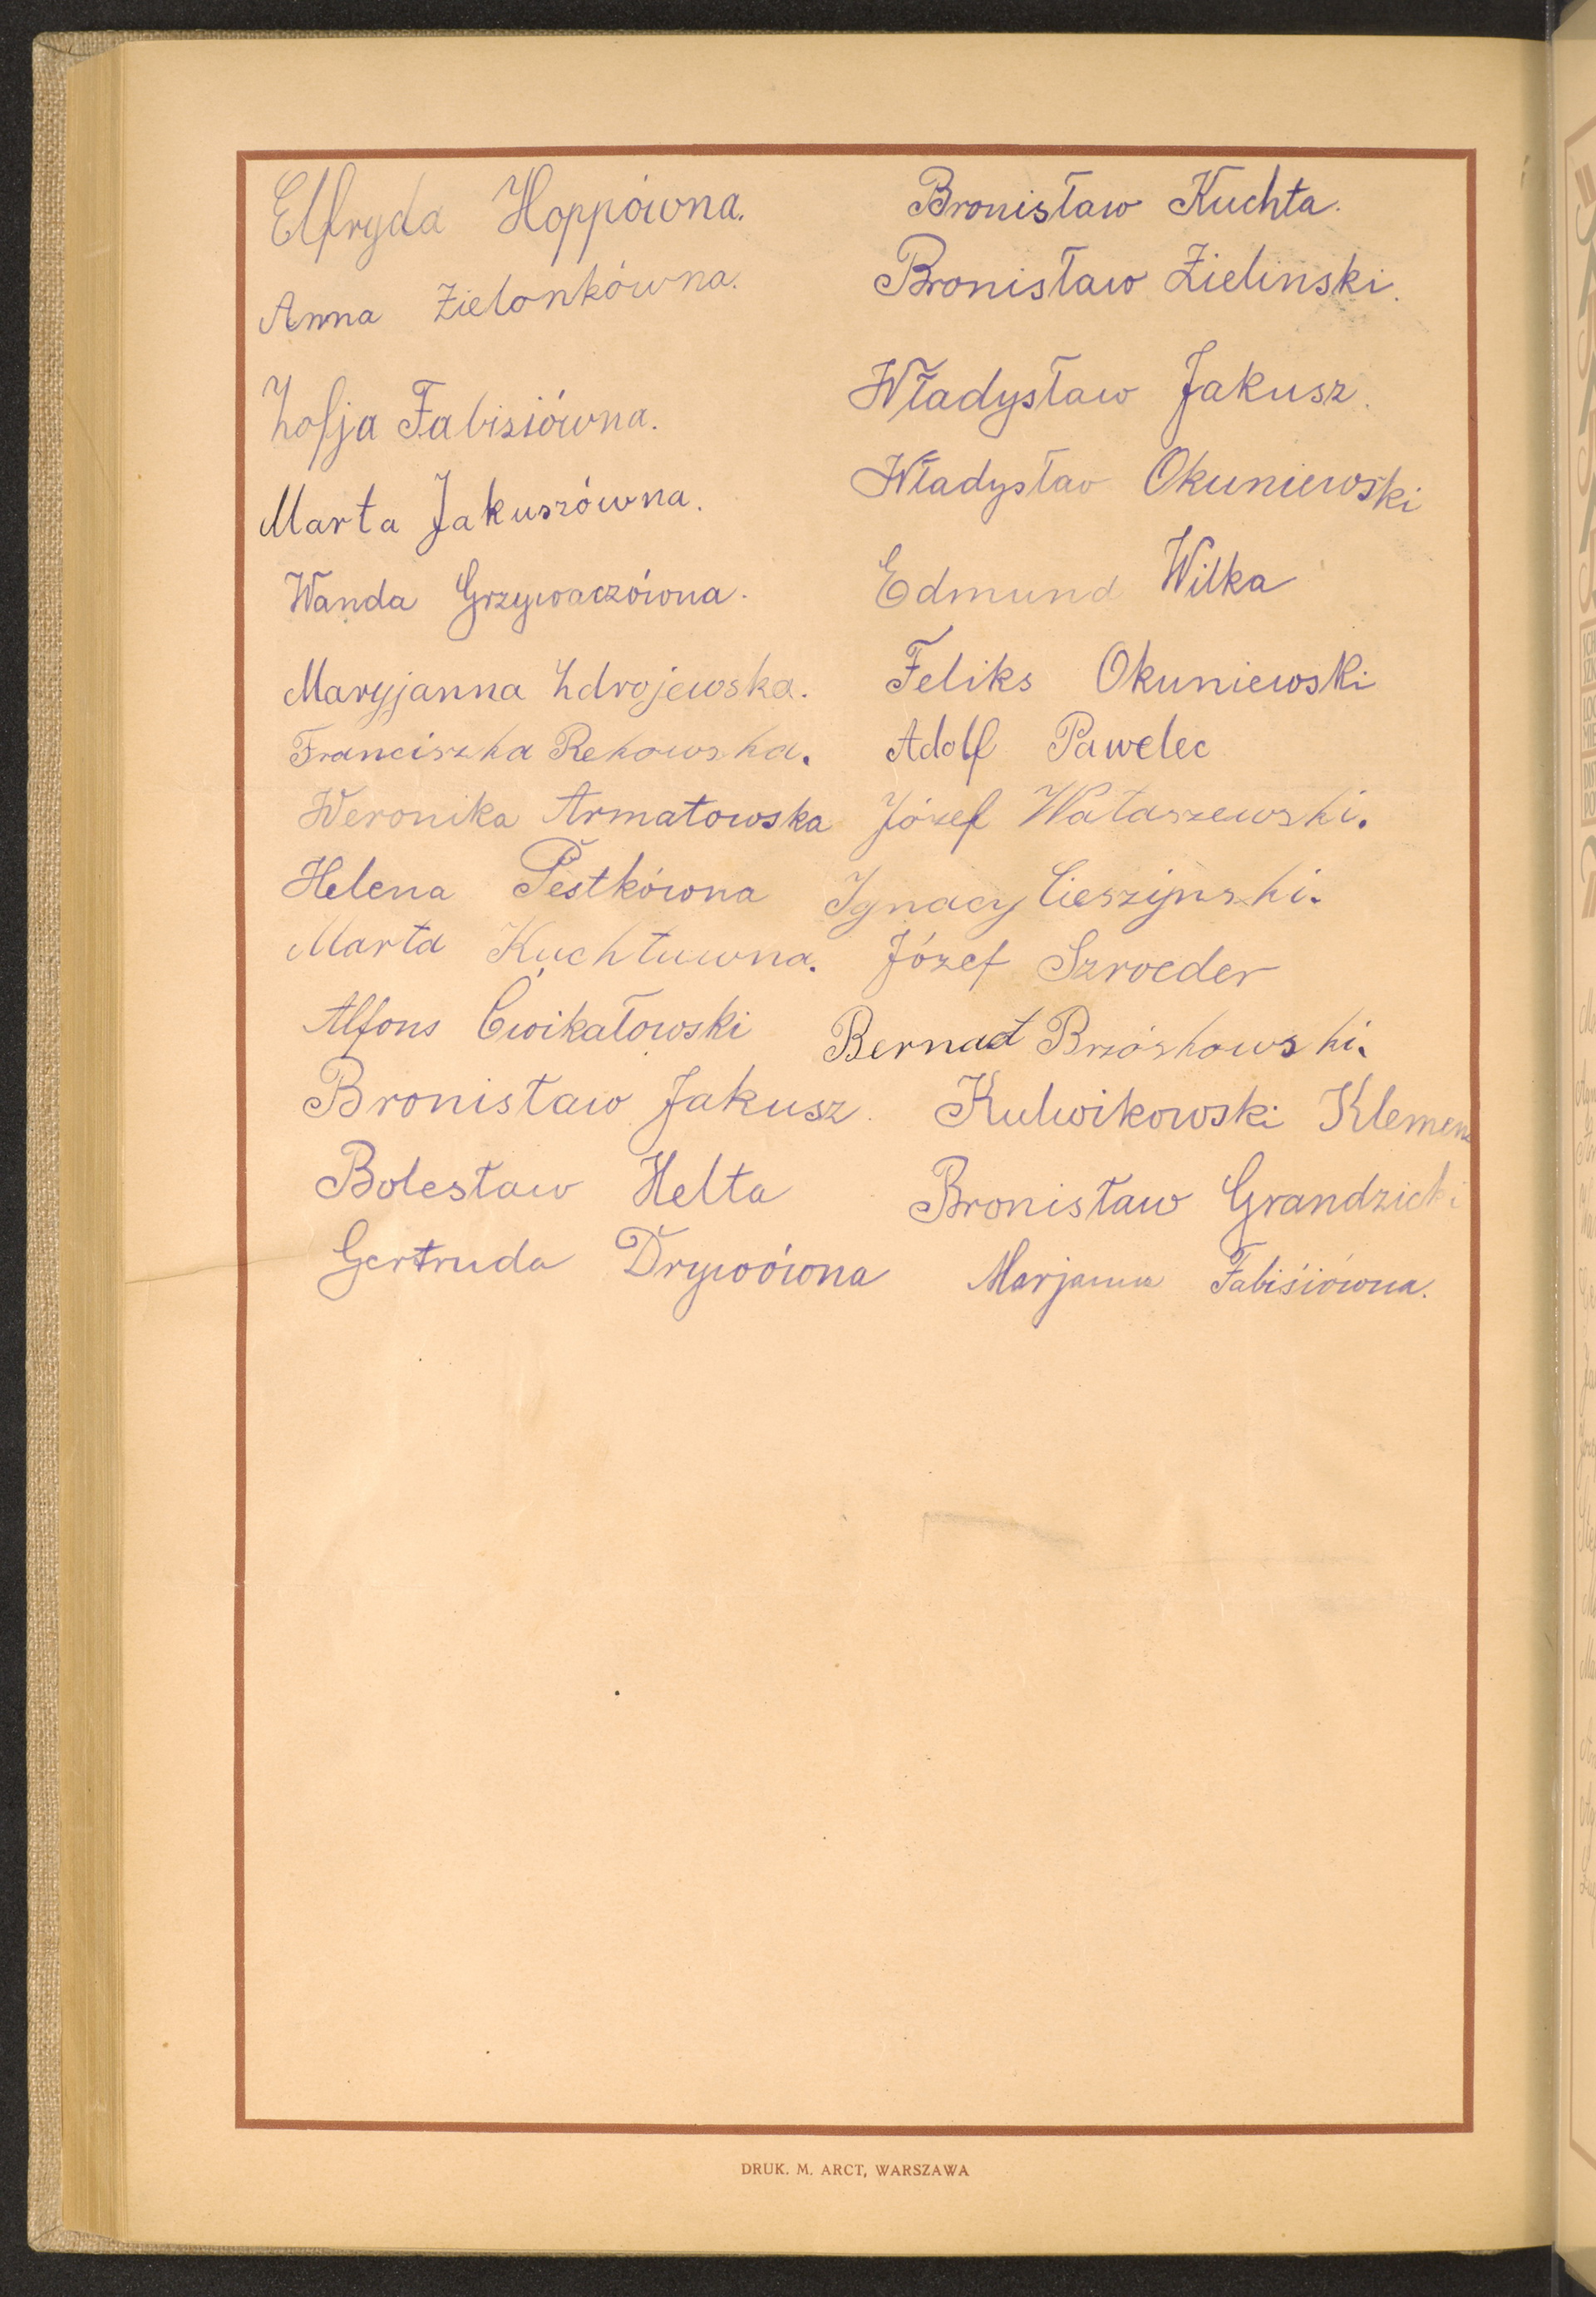 Elfryda Hoppówna.
Anna Zielonkówna.
Zofja Fabisiówna.
Marta Jakuszówna.
Wanda Grzywaczówna.
Maryjanna Zdrojewska.
Franciszka Rekowska.
Weronika Armatowska
Helena Pestkówna
Marta Kuchtuwna.
Alfons Cwikałowski
Bronisław Jakusz.
Bolesław Helta
Gertruda Drywówna
Bronisław Kuchta.
Bronisław Zielinski.
Władysław Jakusz.
Władysław Okuniewski
Edmund Wilka
Feliks Okuniewski
Adolf Pawelec
Józef Wataszewski.
Ignacy Cieszijnski.
Józef Szroeder
Bernadt Brzóskowski.
Kulwikowski Klemens
Bronisław Grandzicki
Marjanna Fabisiówna.
DRUK. M. ARCT, WARSZAWA